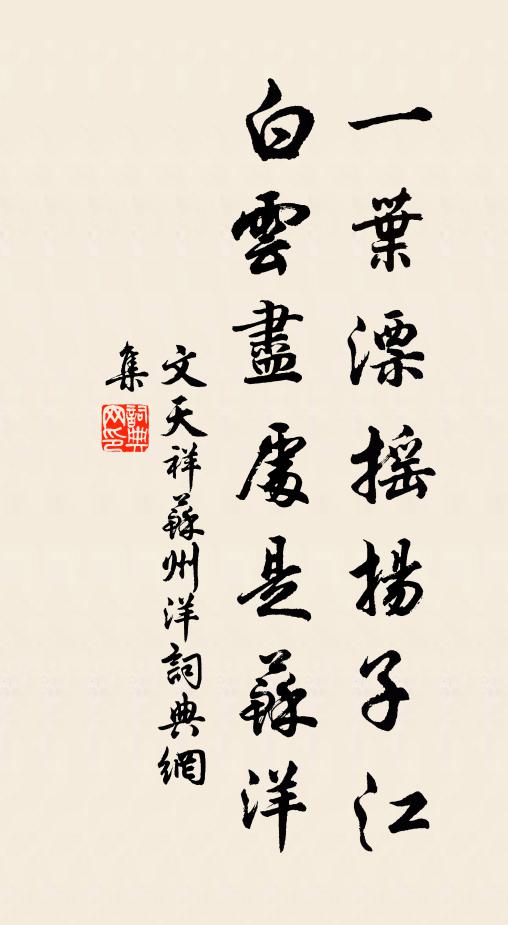 一葉漂摇揚子江
白雲盡處是蘇洋
文天祥蘇州洋詞典網
集
詞典
网印